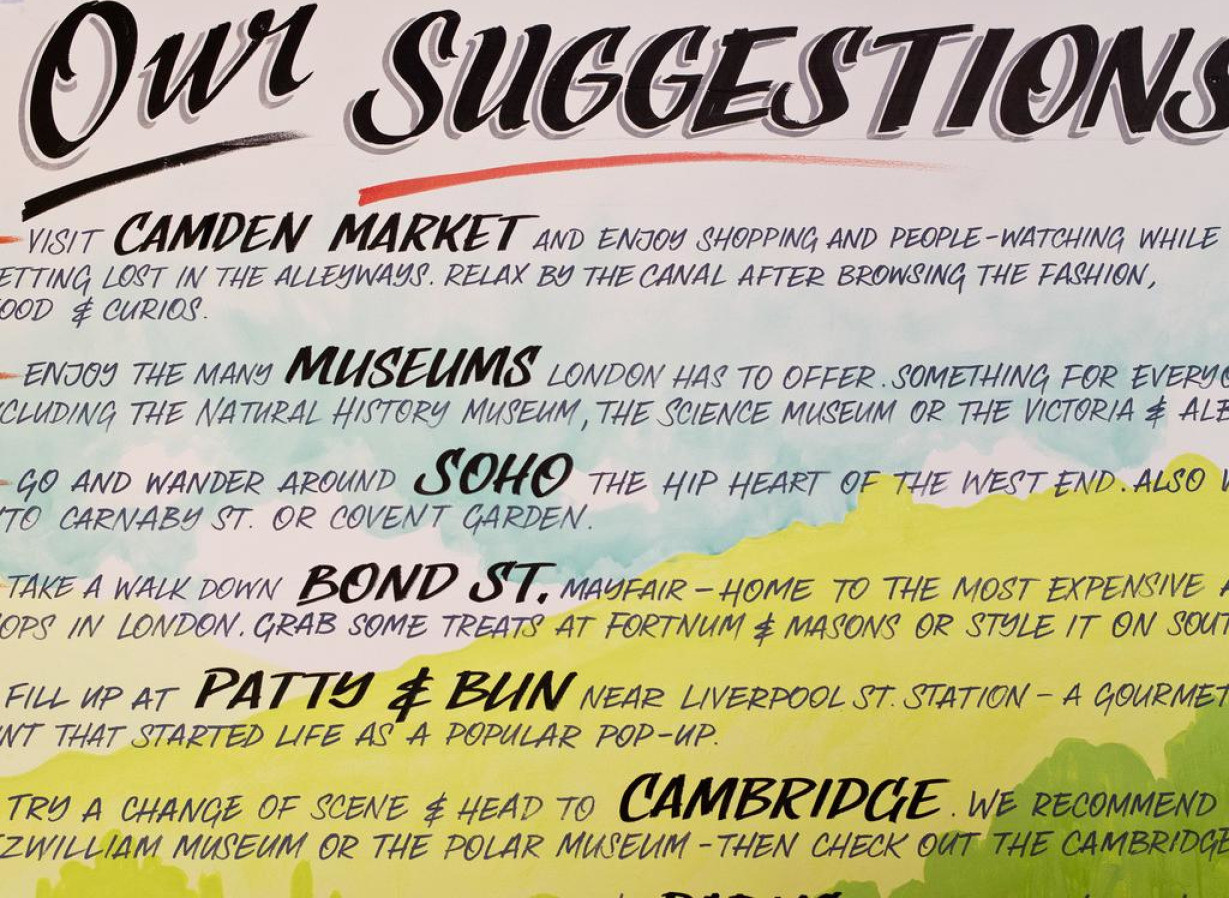 Our SUGGESTIONS
VISIT CAMDEN MARKET AND ENJOY SHOPPING AND PEOPLE-WATCHING WHILE
ETTING LOST IN THE ALLEYWAYS. RELAX BY THE CANAL AFTER BROWSING THE FASHION,
OOD & CURIOS.
ENJOY THE MANY MUSEUMS LONDON HAS TO OFFER. SOMETHING FOR EVERYO
CLUDING THE NATURAL HISTORY MUSEUM, THE SCIENCE MUSEUM OR THE VICTORIA & ALB
GO AND WANDER AROUND SOHO THE HIP HEART OF THE WEST END. ALSO
TO CARNABY ST. OR COVENT GARDEN.
TAKE A WALK DOWN BOND ST. MAYFAIR - HOME TO THE MOST EXPENSIVE
OPS IN LONDON. GRAB SOME TREATS AT FORTNUM & MASONS OR STYLE IT ON SOUT
FILL UP AT PATTY & BUN NEAR LIVERPOOL ST. STATION - A GOURMET
NT THAT STARTED LIFE AS A POPULAR POP-UP.
TRY A CHANGE OF SCENE & HEAD TO CAMBRIDGE. WE RECOMMEND
ZWILLIAM MUSEUM OR THE POLAR MUSEUM - THEN CHECK OUT THE CAMBRIDGE